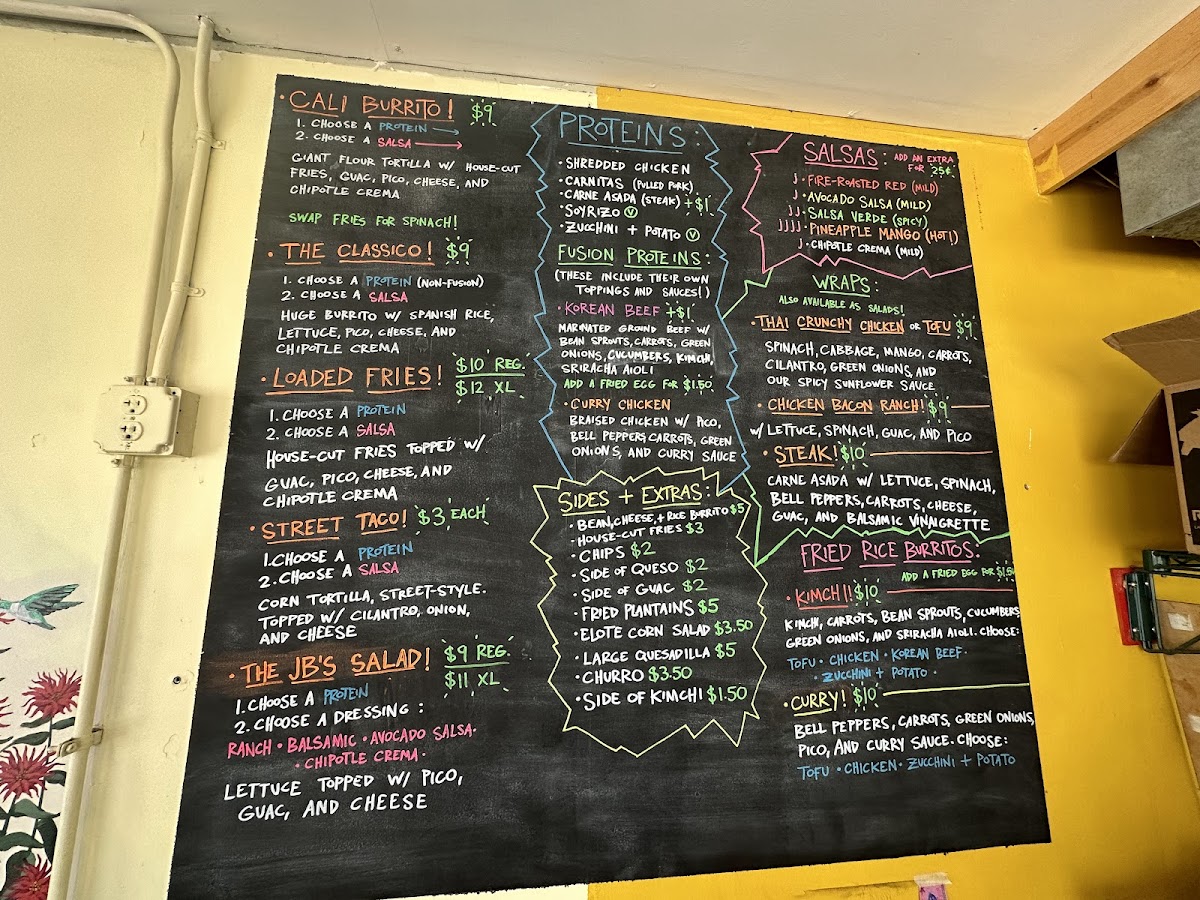 · CALI BURRITO! $9
1. CHOOSE A PROTEIN →
2. CHOOSE A SALSA →
GIANT FLOUR TORTILLA W/ HOUSE-CUT
FRIES, GUAC, PICO, CHEESE, AND
CHIPOTLE CREMA
SWAP FRIES FOR SPINACH!
· THE CLASSICO! $9
1. CHOOSE A PROTEIN (NON-FUSION)
2. CHOOSE A SALSA
HUGE BURRITO W/ SPANISH RICE,
LETTUCE, PICO, CHEESE, AND
CHIPOTLE CREMA
· LOADED FRIES! $10 REG.
$12 XL
1. CHOOSE A PROTEIN
2. CHOOSE A SALSA
HOUSE-CUT FRIES TOPPED W/
GUAC, PICO, CHEESE, AND
CHIPOTLE CREMA
· STREET TACO! $3 EACH
1. CHOOSE A PROTEIN
2. CHOOSE A SALSA
CORN TORTILLA, STREET-STYLE.
TOPPED W/ CILANTRO, ONION,
AND CHEESE
· THE JB'S SALAD! $9 REG.
$11 XL
1. CHOOSE A PROTEIN
2. CHOOSE A DRESSING:
RANCH · BALSAMIC · AVOCADO SALSA·
· CHIPOTLE CREMA ·
LETTUCE TOPPED W/ PICO,
GUAC, AND CHEESE
PROTEINS:
· SHREDDED CHICKEN
· CARNITAS (PULLED PORK)
· CARNE ASADA (STEAK) +$1
· SOYRIZO Ⓥ
· ZUCCHINI + POTATO Ⓥ
FUSION PROTEINS:
(THESE INCLUDE THEIR OWN
TOPPINGS AND SAUCES!)
· KOREAN BEEF +$1
MARINATED GROUND BEEF W/
BEAN SPROUTS, CARROTS, GREEN
ONIONS, CUCUMBERS, KIMCHI,
SRIRACHA AIOLI
ADD A FRIED EGG FOR $1.50
· CURRY CHICKEN
BRAISED CHICKEN W/ PICO,
BELL PEPPERS, CARROTS, GREEN
ONIONS, AND CURRY SAUCE
SIDES + EXTRAS:
· BEAN, CHEESE, + RICE BURRITO $5
· HOUSE-CUT FRIES $3
· CHIPS $2
· SIDE OF QUESO $2
· SIDE OF GUAC $2
· FRIED PLANTAINS $5
· ELOTE CORN SALAD $3.50
· LARGE QUESADILLA $5
· CHURRO $3.50
· SIDE OF KIMCHI $1.50
SALSAS: ADD AN EXTRA
FOR 25¢
· FIRE-ROASTED RED (MILD)
· AVOCADO SALSA (MILD)
· SALSA VERDE (SPICY)
· PINEAPPLE MANGO (HOT!)
· CHIPOTLE CREMA (MILD)
WRAPS:
ALSO AVAILABLE AS SALADS!
· THAI CRUNCHY CHICKEN OR TOFU $9
SPINACH, CABBAGE, MANGO, CARROTS,
CILANTRO, GREEN ONIONS, AND
OUR SPICY SUNFLOWER SAUCE
· CHICKEN BACON RANCH! $9
W/ LETTUCE, SPINACH, GUAC, AND PICO
· STEAK! $10
CARNE ASADA W/ LETTUCE, SPINACH,
BELL PEPPERS, CARROTS, CHEESE,
GUAC, AND BALSAMIC VINAIGRETTE
FRIED RICE BURRITOS:
ADD A FRIED EGG FOR $1.50
· KIMCHI! $10
KIMCHI, CARROTS, BEAN SPROUTS, CUCUMBERS,
GREEN ONIONS, AND SRIRACHA AIOLI. CHOOSE:
TOFU · CHICKEN · KOREAN BEEF ·
· ZUCCHINI + POTATO ·
· CURRY! $10
BELL PEPPERS, CARROTS, GREEN ONIONS,
PICO, AND CURRY SAUCE. CHOOSE:
TOFU · CHICKEN · ZUCCHINI + POTATO